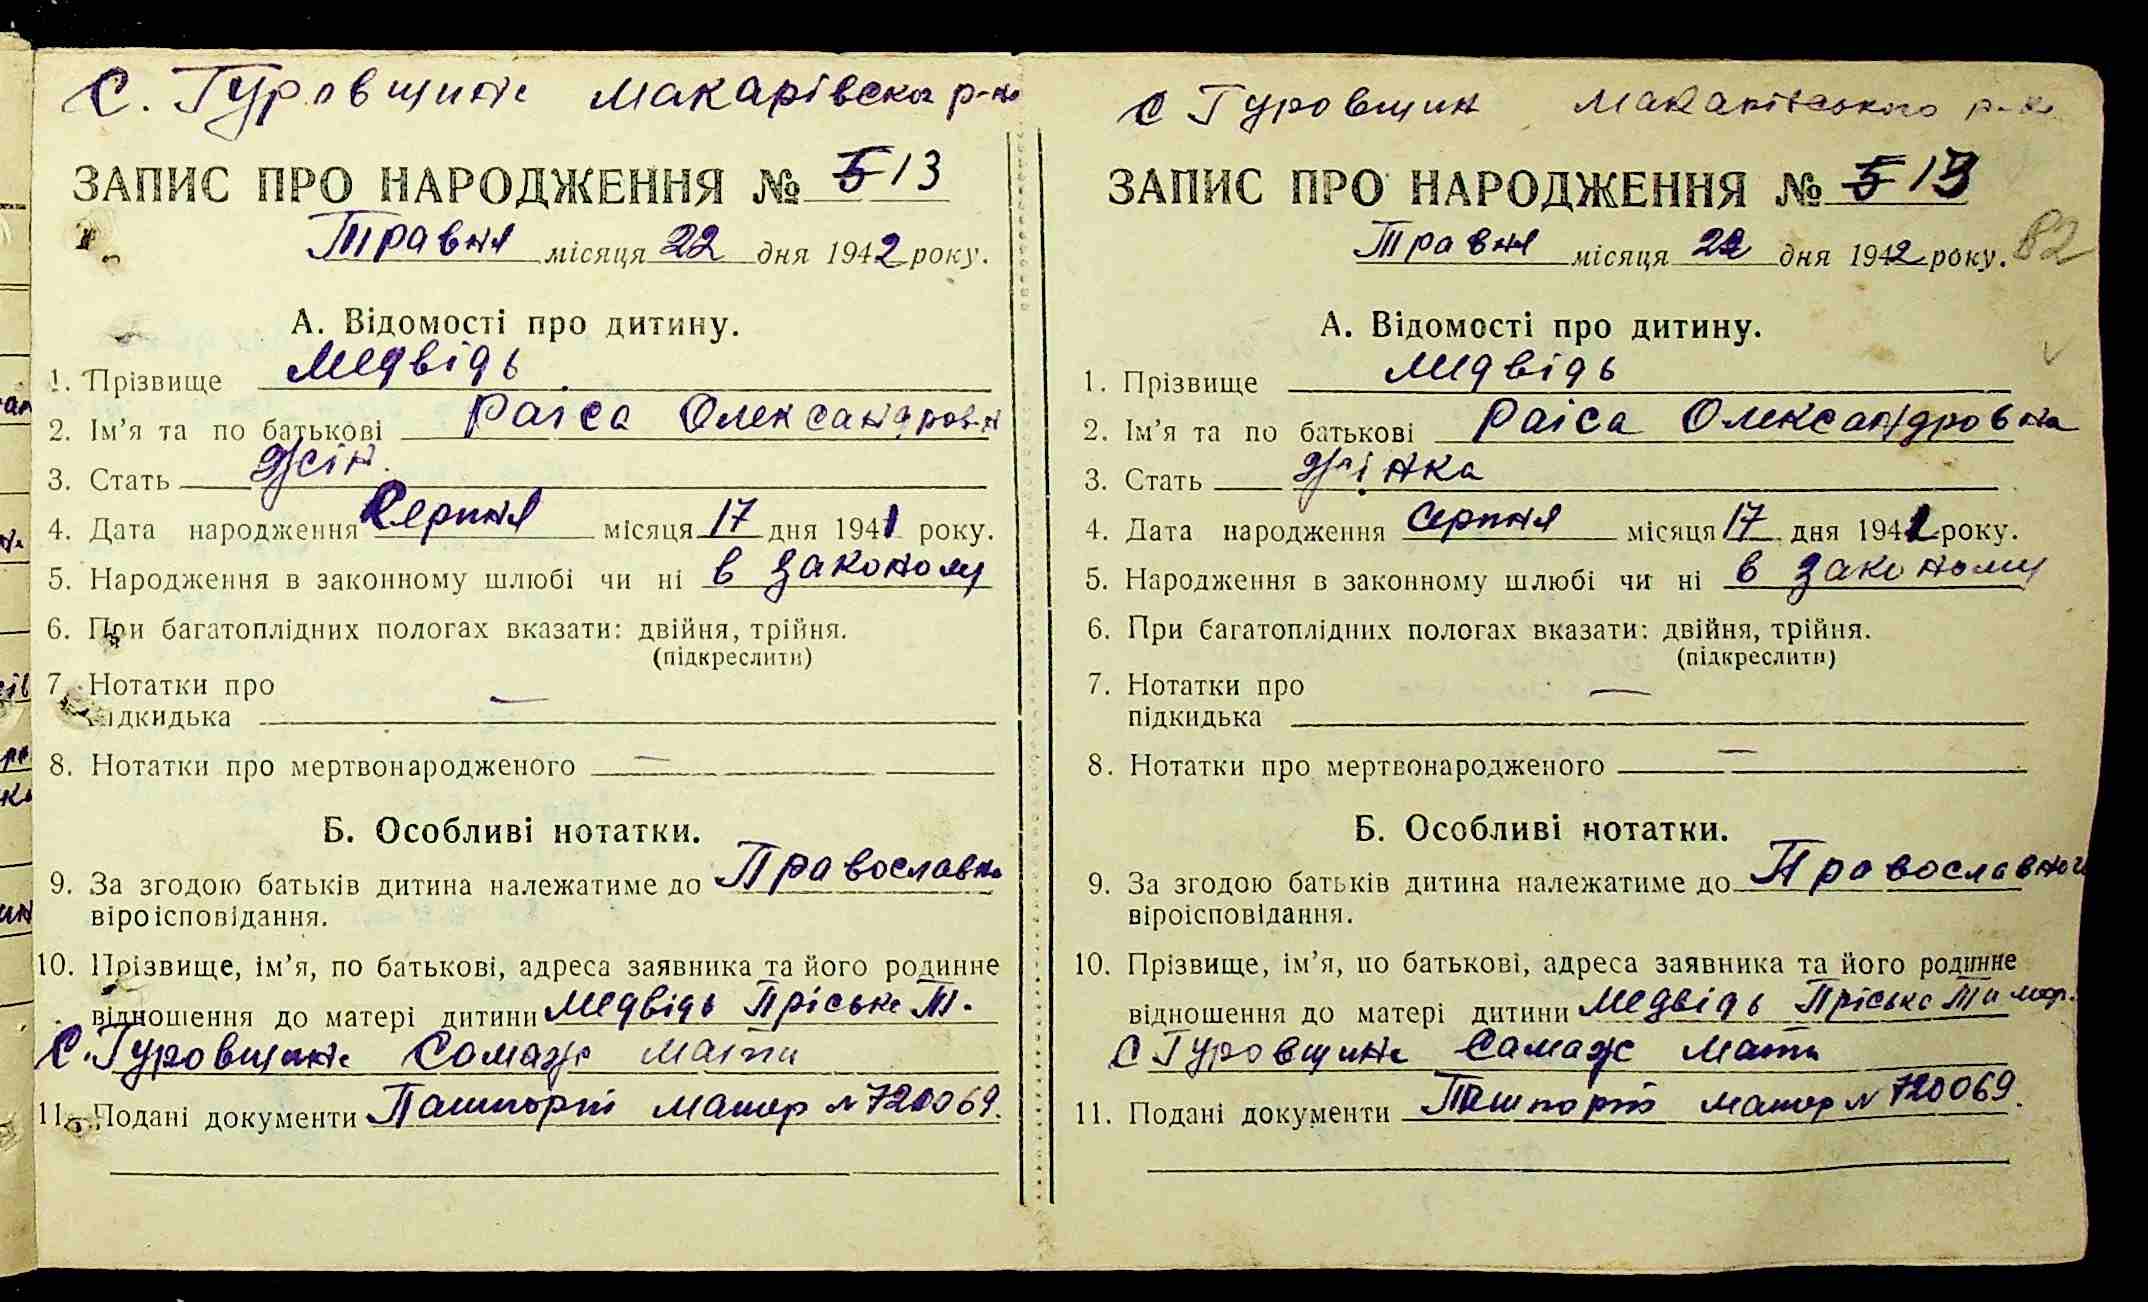 С. Гуровщина Макарівська р-на
ЗАПИС ПРО НАРОДЖЕННЯ № 5 13
Травня місяця 22 дня 1942 року.
А. Відомості про дитину.
1. Прізвище Медвідь
2. Ім’я та по батькові Раіса Олександровн
3. Стать Жін.
4. Дата народження Серпня місяця 17 дня 1941 року.
5. Народження в законному шлюбі чи ні в закономy
6. При багатоплідних пологах вказати: двійня, трійня.
(підкреслити)
7. Нотатки про
підкидька —
8. Нотатки про мертвонародженого —
Б. Особливі нотатки.
9. За згодою батьків дитина належатиме до Православно
віроісповідання.
10. Прізвище, ім’я, по батькові, адреса заявника та його родинне
відношення до матері дитини Медвідь Пріська Т.
С. Гуровщина Сама мати
11. Подані документи Пашпорт матер № 720069.
С Гуровщин Макарівського р-на
ЗАПИС ПРО НАРОДЖЕННЯ № 5 13
Травня місяця 22 дня 1942 року. 82
А. Відомості про дитину.
1. Прізвище Медвідь
2. Ім’я та по батькові Раіса Олександровна
3. Стать жінка
4. Дата народження Серпня місяця 17 дня 1941 року.
5. Народження в законному шлюбі чи ні в закономy
6. При багатоплідних пологах вказати: двійня, трійня.
(підкреслити)
7. Нотатки про
підкидька —
8. Нотатки про мертвонародженого —
Б. Особливі нотатки.
9. За згодою батьків дитина належатиме до Православного
віроісповідання.
10. Прізвище, ім’я, по батькові, адреса заявника та його родинне
відношення до матері дитини Медвідь Пріська Тимор.
С Гуровщина Сама мати
11. Подані документи Пашпорт матер № 720069.